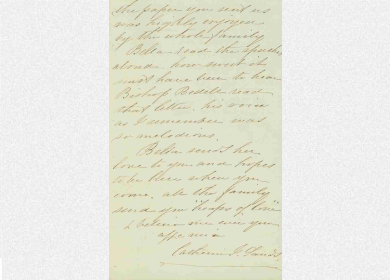 the paper you sent us
was highly enjoyed
by the whole family
Bella read the speech
aloud. how sweet it
must have been to hear
Bishop Bedell read
that letter, his voice
as I remember was
so melodious.
Bella sends her
love to you and hopes
to be here when you
come. all the family
send you "heaps of love"
& believe me ever your
Catharine J.